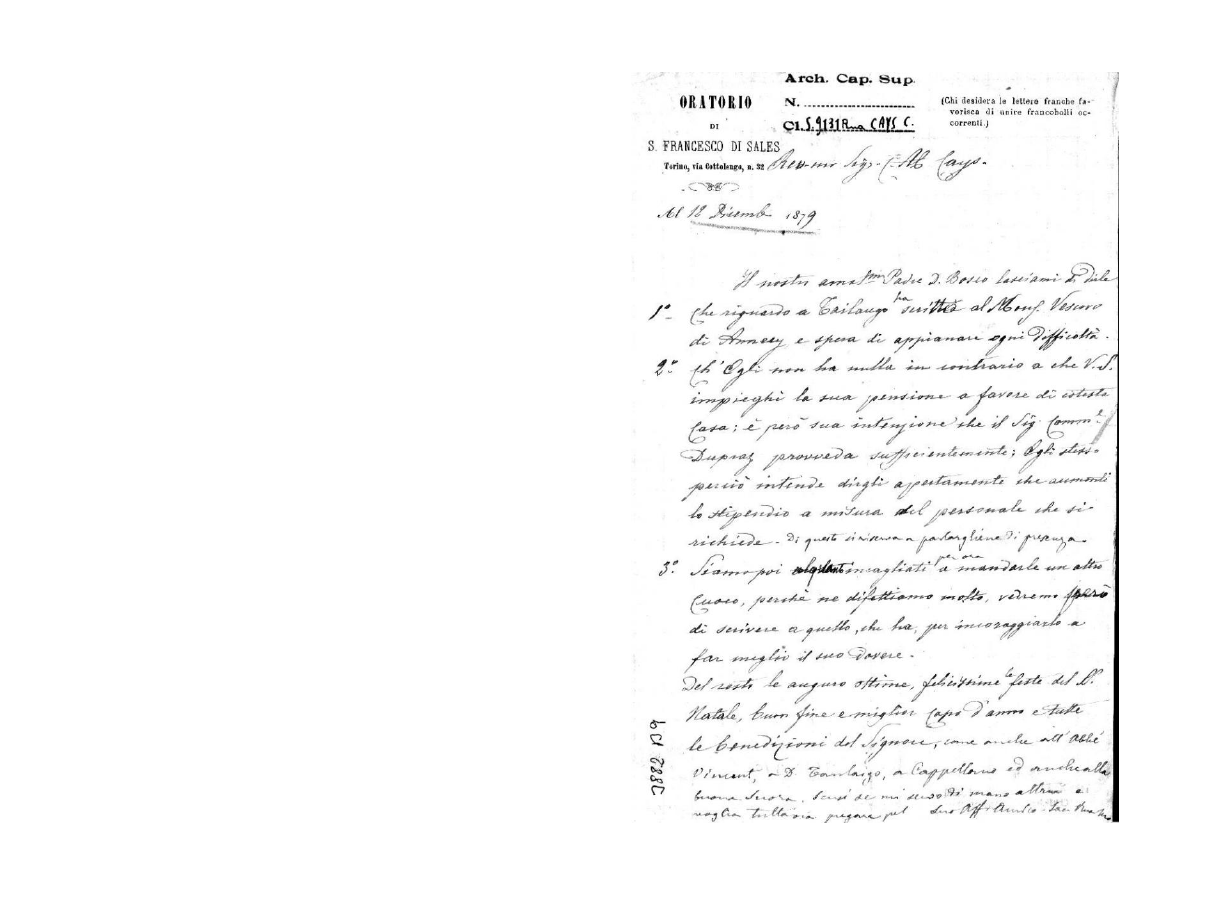 Arch. Cap. Sup.
ORATORIO
DI
S. FRANCESCO DI SALES
Torino, via Cottolengo, n. 32
N.
Cl. S.9131Rua CAYS C.
(Chi desidera le lettere franche fa-
vorisca di unire francobolli oc-
correnti.)
Rev.mo Sig. C. Ab Cays.
Al 18 Dicemb 1879
Il nostro ama.mo Padre D. Bosco lasciami di dirle
1° Che riguardo a ha scritto al Mons. Vescovo
di Annecy e spera di appianare ogni difficoltà.
2° Ch' Egli non ha nulla in contrario a che V. S.
impieghi la sua pensione a favore di cotesta
Casa; è però sua intenzione che il Sig. Comm.e
Dupraz provveda sufficientemente; Egli stesso
perciò intende dirgli apertamente che aumenti
lo stipendio a misura del personale che si
richiede. Di questo si riserva a parlargliene di presenza.
3° Siamo poi incagliati per ora a mandarle un altro
Cuoco, perchè ne difettiamo molto, vedremo però
di scrivere a quello, che ha, per incoraggiarlo a
far meglio il suo dovere.
Del resto le auguro ottime, felicissime le feste del S.
Natale, buon fine e miglior capo d'anno e tutte
le Benedizioni del Signore, come anche all' Abbé
Vincent, a D. a Cappellano ed anche alla
buona Suora. Scusi se mi servo di mano altrui e
voglia tuttavia pregare pel Suo Aff. Amico Sac. Rua
3882 D4